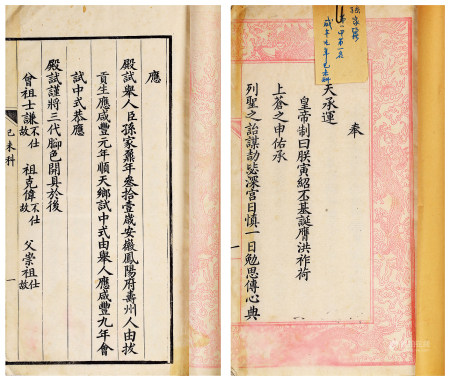 應
殿試舉人臣孫家鼐年叁拾壹歲安徽鳳陽府壽州人由拔
貢生應咸豐元年順天鄉試中式由舉人應咸豐九年會
試中式恭應
殿試謹將三代腳色開具於後
曾祖士謙不仕故 祖克偉不仕故 父崇祖仕故
己未科
一
孫家鼐
第一甲第一名
咸豐九年己未科
奉
天承運
皇帝制曰朕寅紹丕基誕膺洪祚荷
上蒼之申佑承
列聖之詒謀劼毖深宮日慎一日勉思傳心典